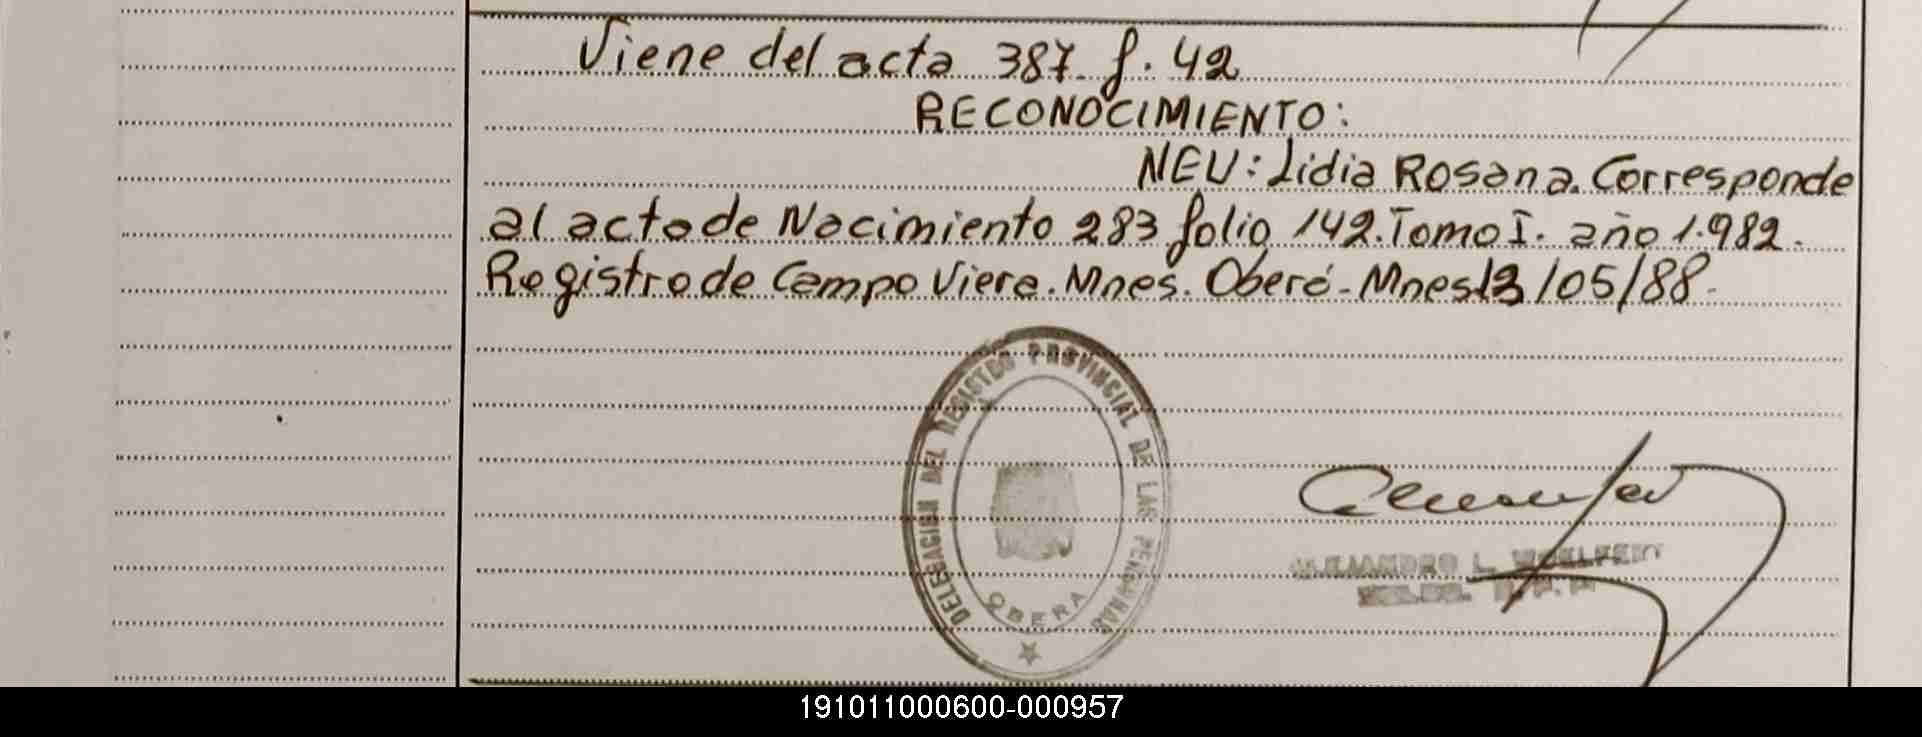 Viene del acta 387 f. 42
RECONOCIMIENTO:
NEU: Lidia Rosana. Corresponde
al acta de Nacimiento 283 folio 142. Tomo I. año 1.982.
Registro de Campo Viera. Mnes. Oberá - Mnes 13/05/88.
DELEGACION DEL REGISTRO PROVINCIAL DE LAS PERSONAS
OBERA
ALEJANDRO L.
191011000600-000957